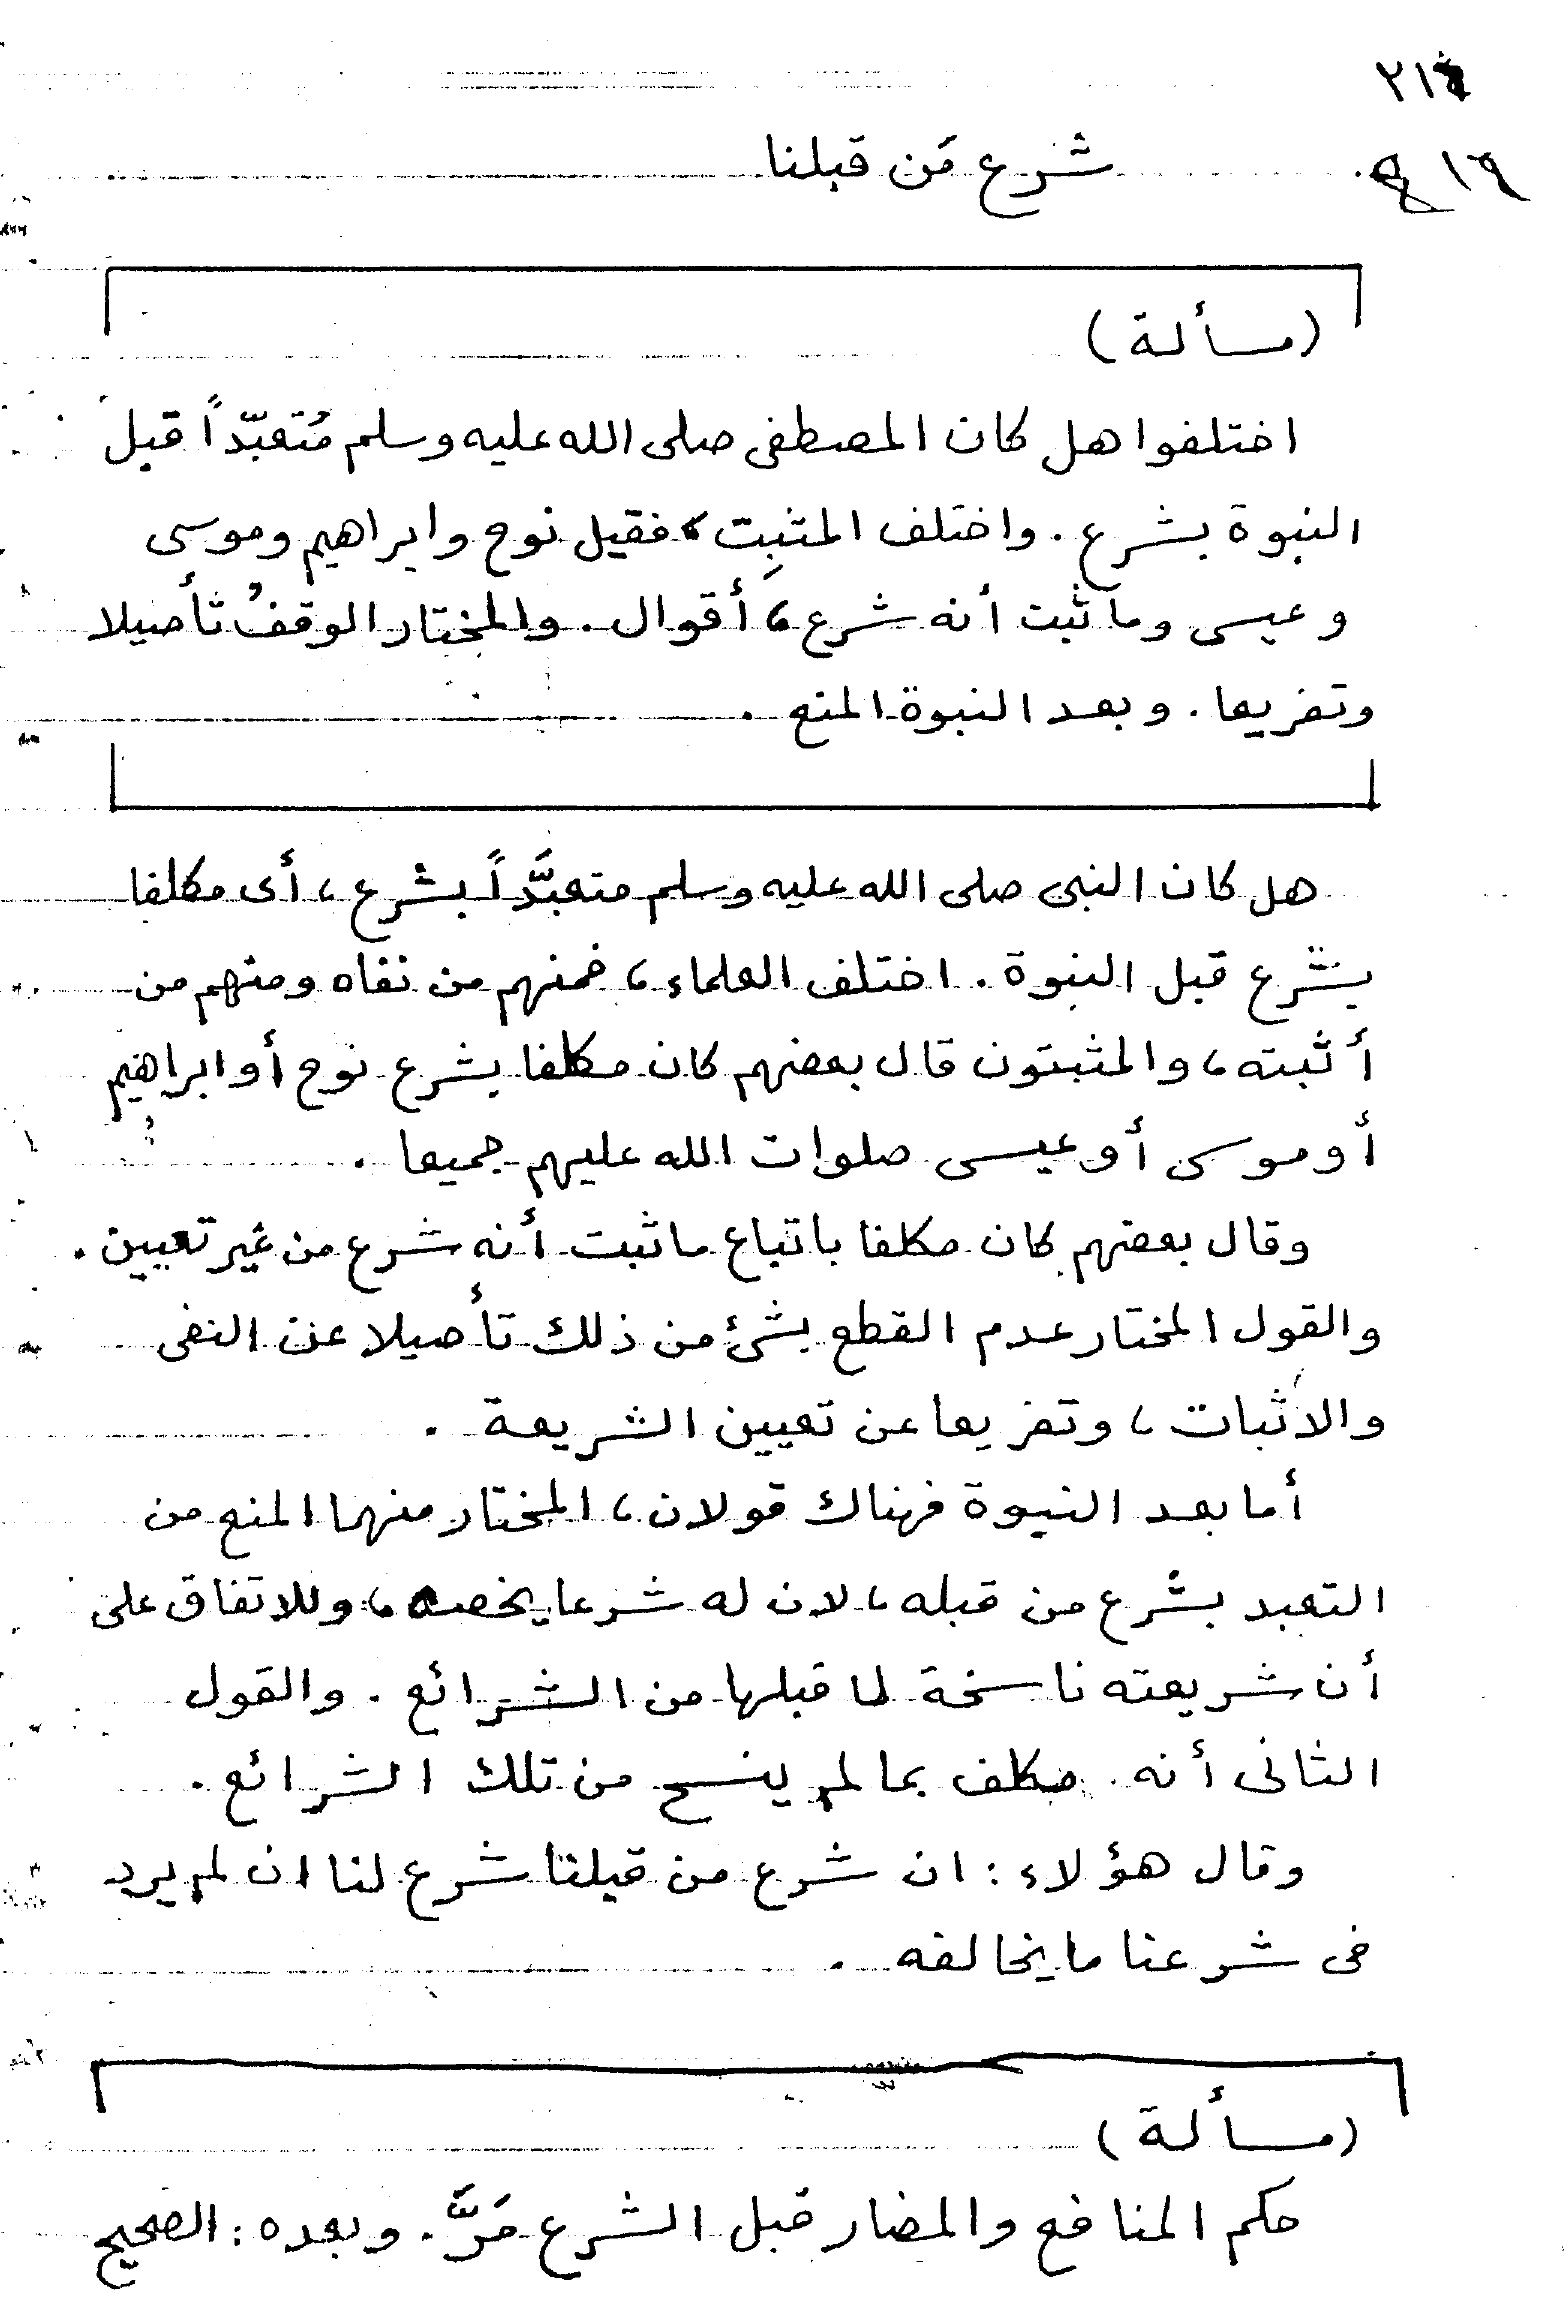 شرع مَن قبلنا
(مسألة)
اختلفوا هل كان المصطفى صلى الله عليه وسلم مُتعبّداً قبل
النبوة بشرع . واختلف المثبِت ، فقيل نوح وابراهيم وموسى
وعيسى وما ثبت أنه شرع ، أقوال . والمختار الوقفُ تأصيلا
وتفريعا . وبعد النبوة المنع .
هل كان النبى صلى الله عليه وسلم متعبَّداً بشرع ، أى مكلفا
بشرع قبل النبوة . اختلف العلماء ، فمنهم من نفاه ومنهم من
أثبته ، والمثبتون قال بعضهم كان مكلفا بشرع نوح أو ابراهيم
أو موسى أو عيسى صلوات الله عليهم جميعا .
وقال بعضهم كان مكلفا باتباع ما ثبت أنه شرع من غير تعيين .
والقول المختار عدم القطع بشئ من ذلك تأصيلا عن النفى
والاثبات ، وتفريعا عن تعيين الشريعة .
أما بعد النبوة فهناك قولان ، المختار منهما المنع من
التعبد بشرع من قبله ، لان له شرعا يخصه ، وللاتفاق على
أن شريعته ناسخة لما قبلها من الشرائع . والقول
الثانى أنه مكلف بما لم ينسخ من تلك الشرائع .
وقال هؤلاء : ان شرع من قبلنا شرع لنا ان لم يرد
فى شرعنا ما يخالفه .
(مسألة)
حكم المنافع والمضار قبل الشرع مَرَّ . وبعده : الصحيح